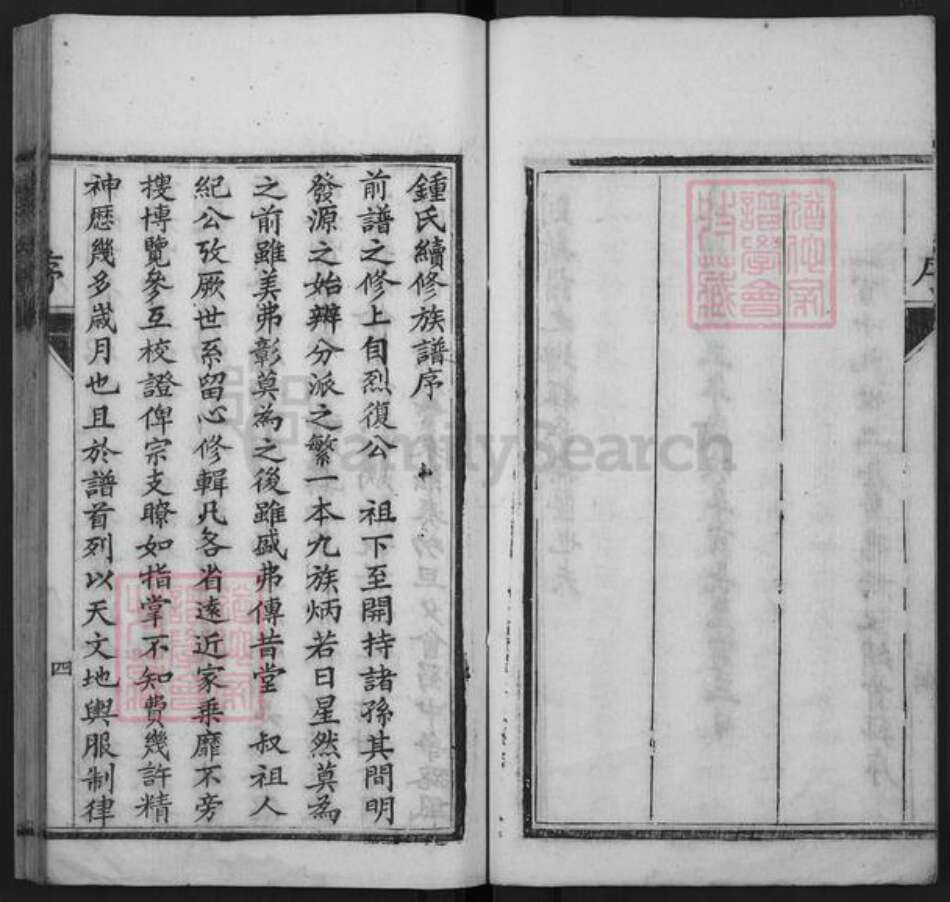 序
鍾氏續修族譜序
前譜之修上自烈復公　祖下至開持諸孫其間明
發源之始辨分派之繁一本九族炳若日星然莫為
之前雖美弗彰莫為之後雖盛弗傳昔堂　叔祖人
紀公攷厥世系留心修輯凡各省遠近家乘靡不旁
搜博覽參互校證俾宗支瞭如指掌不知費幾許精
神歷幾多歲月也且於譜首列以天文地輿服制律
序
四
FamilySearch